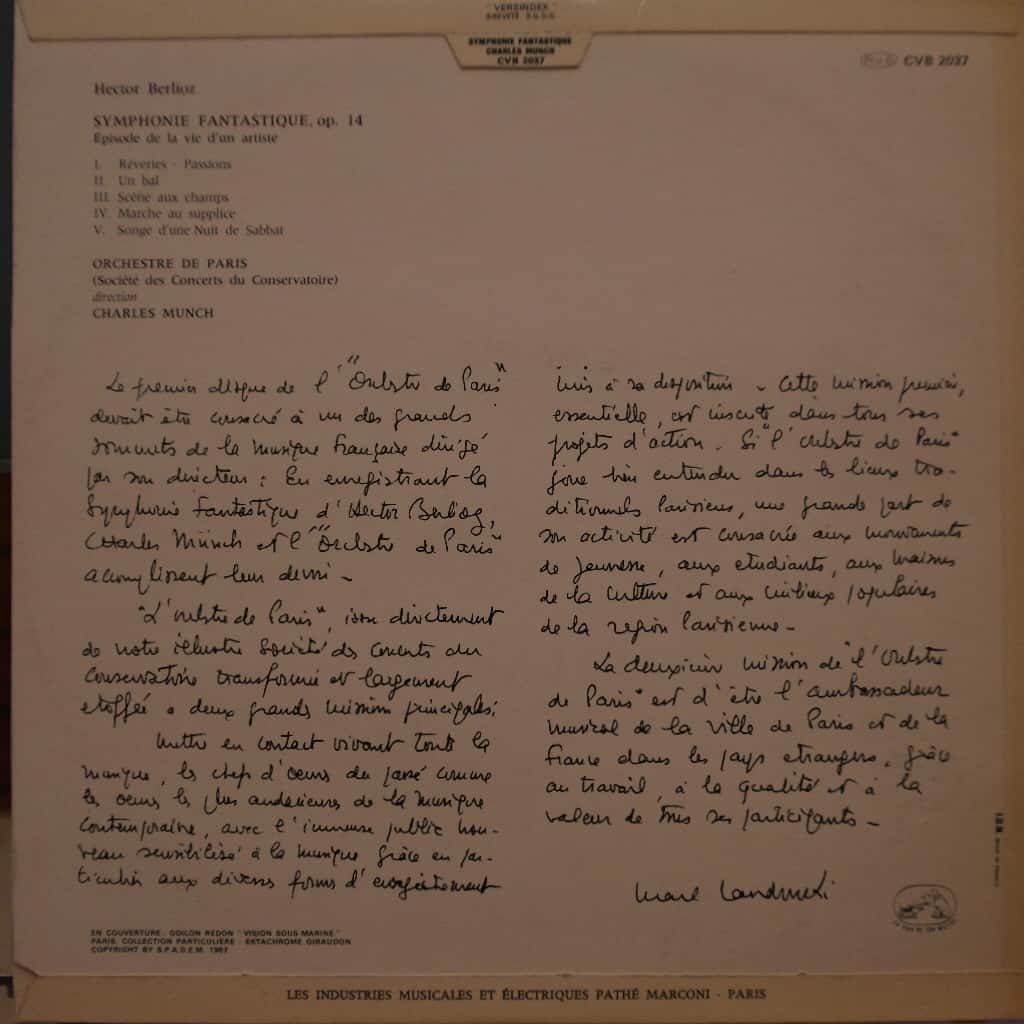 "VERSINDEX"
BREVETÉ S.G.D.G.
SYMPHONIE FANTASTIQUE
CHARLES MUNCH
CVB 2037
CVB 2037
Hector Berlioz
SYMPHONIE FANTASTIQUE, op. 14
Episode de la vie d'un artiste
I. Rêveries - Passions
II. Un bal
III. Scène aux champs
IV. Marche au supplice
V. Songe d'une Nuit de Sabbat
ORCHESTRE DE PARIS
(Société des Concerts du Conservatoire)
direction
CHARLES MUNCH
Le premier disque de l'"Orchestre de Paris"
devait être consacré à un des grands
sommets de la musique française dirigé
par son directeur : En enregistrant la
Symphonie Fantastique d'Hector Berlioz,
Charles Münch et l'"Orchestre de Paris"
accomplissent leur devoir -
"L'orchestre de Paris", issu directement
de notre illustre Société des concerts du
Conservatoire transformée et largement
etoffée a deux grands mission principales:
Mettre en contact vivant toute la
musique, les chefs d'oeuvres du passé comme
les oeuvres les plus audacieuses de la musique
contemporaine, avec l'immense public nou-
veau sensibilisé à la musique grâce en par-
ticulier aux divers formes d'enregistrement
mis à sa disposition - Cette mission première,
essentielle, est inscrite dans tous ses
projets d'action - Si "l'orchestre de Paris"
joue bien entendu dans les lieux tra-
ditionnels parisiens, une grande part de
son activité est consacrée aux mouvements
de jeunesse, aux etudiants, aux maisons
de la culture et aux milieux populaires
de la region Parisienne -
La deuxième mission de "l'Orchestre
de Paris" est d'être l'ambassadeur
musical de la ville de Paris et de la
France dans les pays etrangers, grâce
au travail, à la qualité et à la
valeur de tous ses participants -
Marcel Landowski
EN COUVERTURE : ODILON REDON "VISION SOUS-MARINE"
PARIS, COLLECTION PARTICULIERE - EKTACHROME GIRAUDON
COPYRIGHT BY S.P.A.D.E.M. 1967
LES INDUSTRIES MUSICALES ET ÉLECTRIQUES PATHÉ MARCONI - PARIS